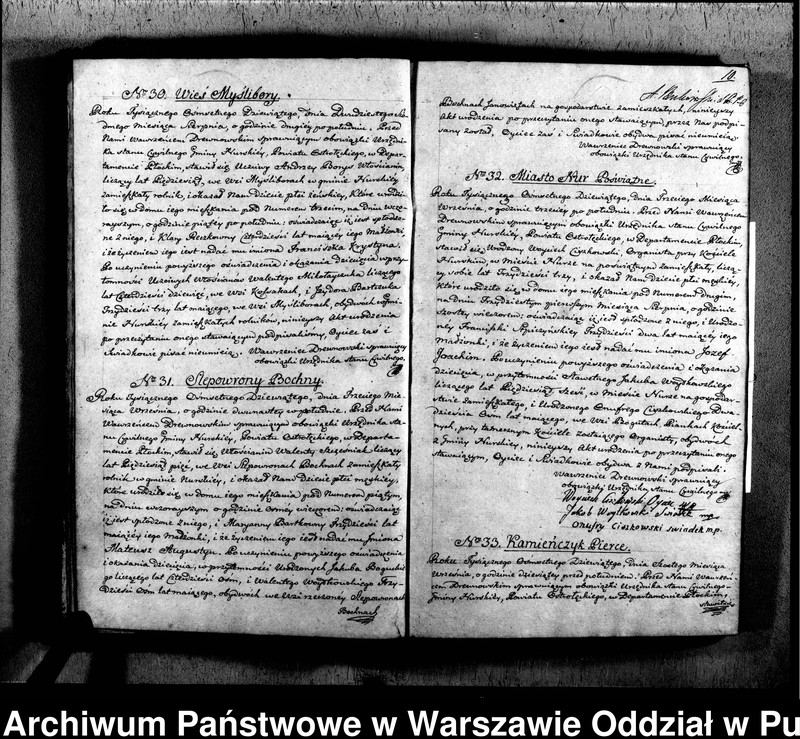 No 30. Wieś Myślibory.
Roku Tysiącznego Ośmsetnego Dziewiątego, dnia Dwudziestego
dnego Miesiąca Sierpnia, o godzinie drugiey po południu. Przed
Nami Wawrzeńcem Drewnowskim sprawuiącym obowiązki Urzędni-
ka Stanu Cywilnego Gminy Nurskiey, Powiatu Ostrołęckiego, w Depar-
tamencie Płockim, stawił się Uczciwy Andrzey Borys Włościanin,
liczący lat Pięćdziesiąt, we Wsi Myśliborach w gminie Nurskiey
zamieszkały rolnik, i okazał Nam dziecie płci żeńskiey, które urodzi-
ło się w domu iego mieszkania pod Numerem trzecim, na dniu wczo-
rayszym, o godzinie piątey po południu; oświadczaiąc iż iest spłodzo-
ne z niego, i Klary lat maiącey iego Małżonki
i że życzeniem iego iest nadać mu imiona Franciszka Krystyna.
Po uczynieniu powyższego oświadczenia i okazaniu dziecięcia w przy-
tomności Uczciwych Włościanów Walentego Mikołayczuka liczącego
lat Czterdzieści dziewięć, we Wsi i Izydora Bartczuka
Trzydzieści trzy lat maiącego, we Wsi Myśliborach, obydwóch w gmi-
nie Nurskiey zamieszkałych rolników, ninieyszy Akt urodzenia
po przeczytaniu onego stawaiącym podpisaliśmy, Oyciec zaś i
Świadkowie pisać nieumieią. Wawrzeniec Drewnowski sprawuiący
obowiązki Urzędnika Stanu Cywilnego.
No 31. Stepowrony Bochny.
Roku Tysiącznego Ośmsetnego Dziewiątego, dnia Trzeciego Mie-
siąca Września, o godzinie dwunastey w południe. Przed Nami
Wawrzeńcem Drewnowskim sprawuiącym obowiązki Urzędnika Sta-
nu Cywilnego Gminy Nurskiey, Powiatu Ostrołęckiego, w Departa-
mencie Płockim, stawił się Włościanin Walenty Szcześniak liczący
lat Pięćdziesiąt pięć, we Wsi Stepowronach Bochnach zamieszkały
rolnik w gminie Nurskiey, i okazał Nam Dziecie płci męskiey,
które urodziło się w domu iego mieszkania pod Numerem piątym,
na dniu wczorayszym o godzinie ósmey wieczorem; oświadczaiąc
iż iest spłodzone z niego, i Maryanny Bartkowny Trzydzieści lat
maiącey iego Małżonki, i że życzeniem iego iest nadać mu Imiona
Mateusz Augustyn. Po uczynieniu powyższego oświadczenia
i okazaniu dziecięcia, w przytomności Urodzonych Jakuba Boguckie-
go liczącego lat Czterdzieści Ośm, i Walentego Woytkowskiego Trzy-
dzieści Ośm lat maiącego, obydwóch we Wsi rzeczoney Stepowronach
Bochnach
10.
Bochnach Janowiętach na gospodarstwie zamieszkałych, ninieyszy
Akt urodzenia po przeczytaniu onego Stawaiącym, przez Nas podpi-
sany został, Oyciec zaś i Świadkowie obydwa pisać nieumieią.
Wawrzeniec Drewnowski sprawuiący
obowiązki Urzędnika Stanu Cywilnego.
No 32. Miasto Nur Poświątne.
Roku Tysiącznego Ośmsetnego Dziewiątego, dnia Trzeciego Miesiąca
Września, o godzinie trzeciey po południu. Przed Nami Wawrzeńcem
Drewnowskim sprawuiącym obowiązki Urzędnika Stanu Cywilnego
Gminy Nurskiey, Powiatu Ostrołęckiego, w Departamencie Płockim,
stawił się Urodzony Woyciech Ciszkowski, Organista przy Kościele
Nurskim, w Mieście Nurze na poświątnym zamieszkały, liczą-
cy sobie lat Trzydzieści trzy, i okazał Nam dziecie płci męskiey,
które urodziło się w domu iego mieszkania pod Numerem drugim,
na dniu Trzydziestym pierwszym Miesiąca Sierpnia, o godzinie
szóstey wieczorem; oświadczaiąc iż iest spłodzone z niego, i Urodzo-
ney Franciszki Trzydzieści dwa lat maiącey iego
Małżonki, i że życzeniem iego iest nadać mu imiona Jozef
Joachim. Po uczynieniu powyższego oświadczenia i okazania
dziecięcia, w przytomności Sławetnego Jakuba Woytkowskiego
liczącego lat Pięćdziesiąt sześć, w Mieście Nurze na gospodar-
stwie zamieszkałego, i Urodzonego Onufrego Ciszkowskiego Dwa-
dzieścia Ośm lat maiącego, we Wsi Rogutkach Piankach
nych, przy tamecznym Kościele zostaiącego Organisty, obydwóch
z Gminy Nurskiey, ninieyszy Akt urodzenia po przeczytaniu onego
stawaiącym, Oyciec i Świadkowie obydwa z Nami podpisali.
Wawrzeniec Drewnowski sprawuiący
obowiązki Urzędnika Stanu Cywilnego
Woyciech Ciszkowski Oyciec
Jakob Woytkowski Swiadek mp
Onufry Ciszkowski swiadek mp.
No 33. Kamieńczyk Pierce.
Roku Tysiącznego Ośmsetnego Dziewiątego, dnia Szóstego Miesiąca
Września, o godzinie dziewiątey przed południem. Przed Nami Wawrzeń-
cem Drewnowskim sprawuiącym obowiązki Urzędnika Stanu Cywilnego
Gminy Nurskiey, Powiatu Ostrołęckiego, w Departamencie Płockim,
Archiwum Państwowe w Warszawie Oddział w Pu